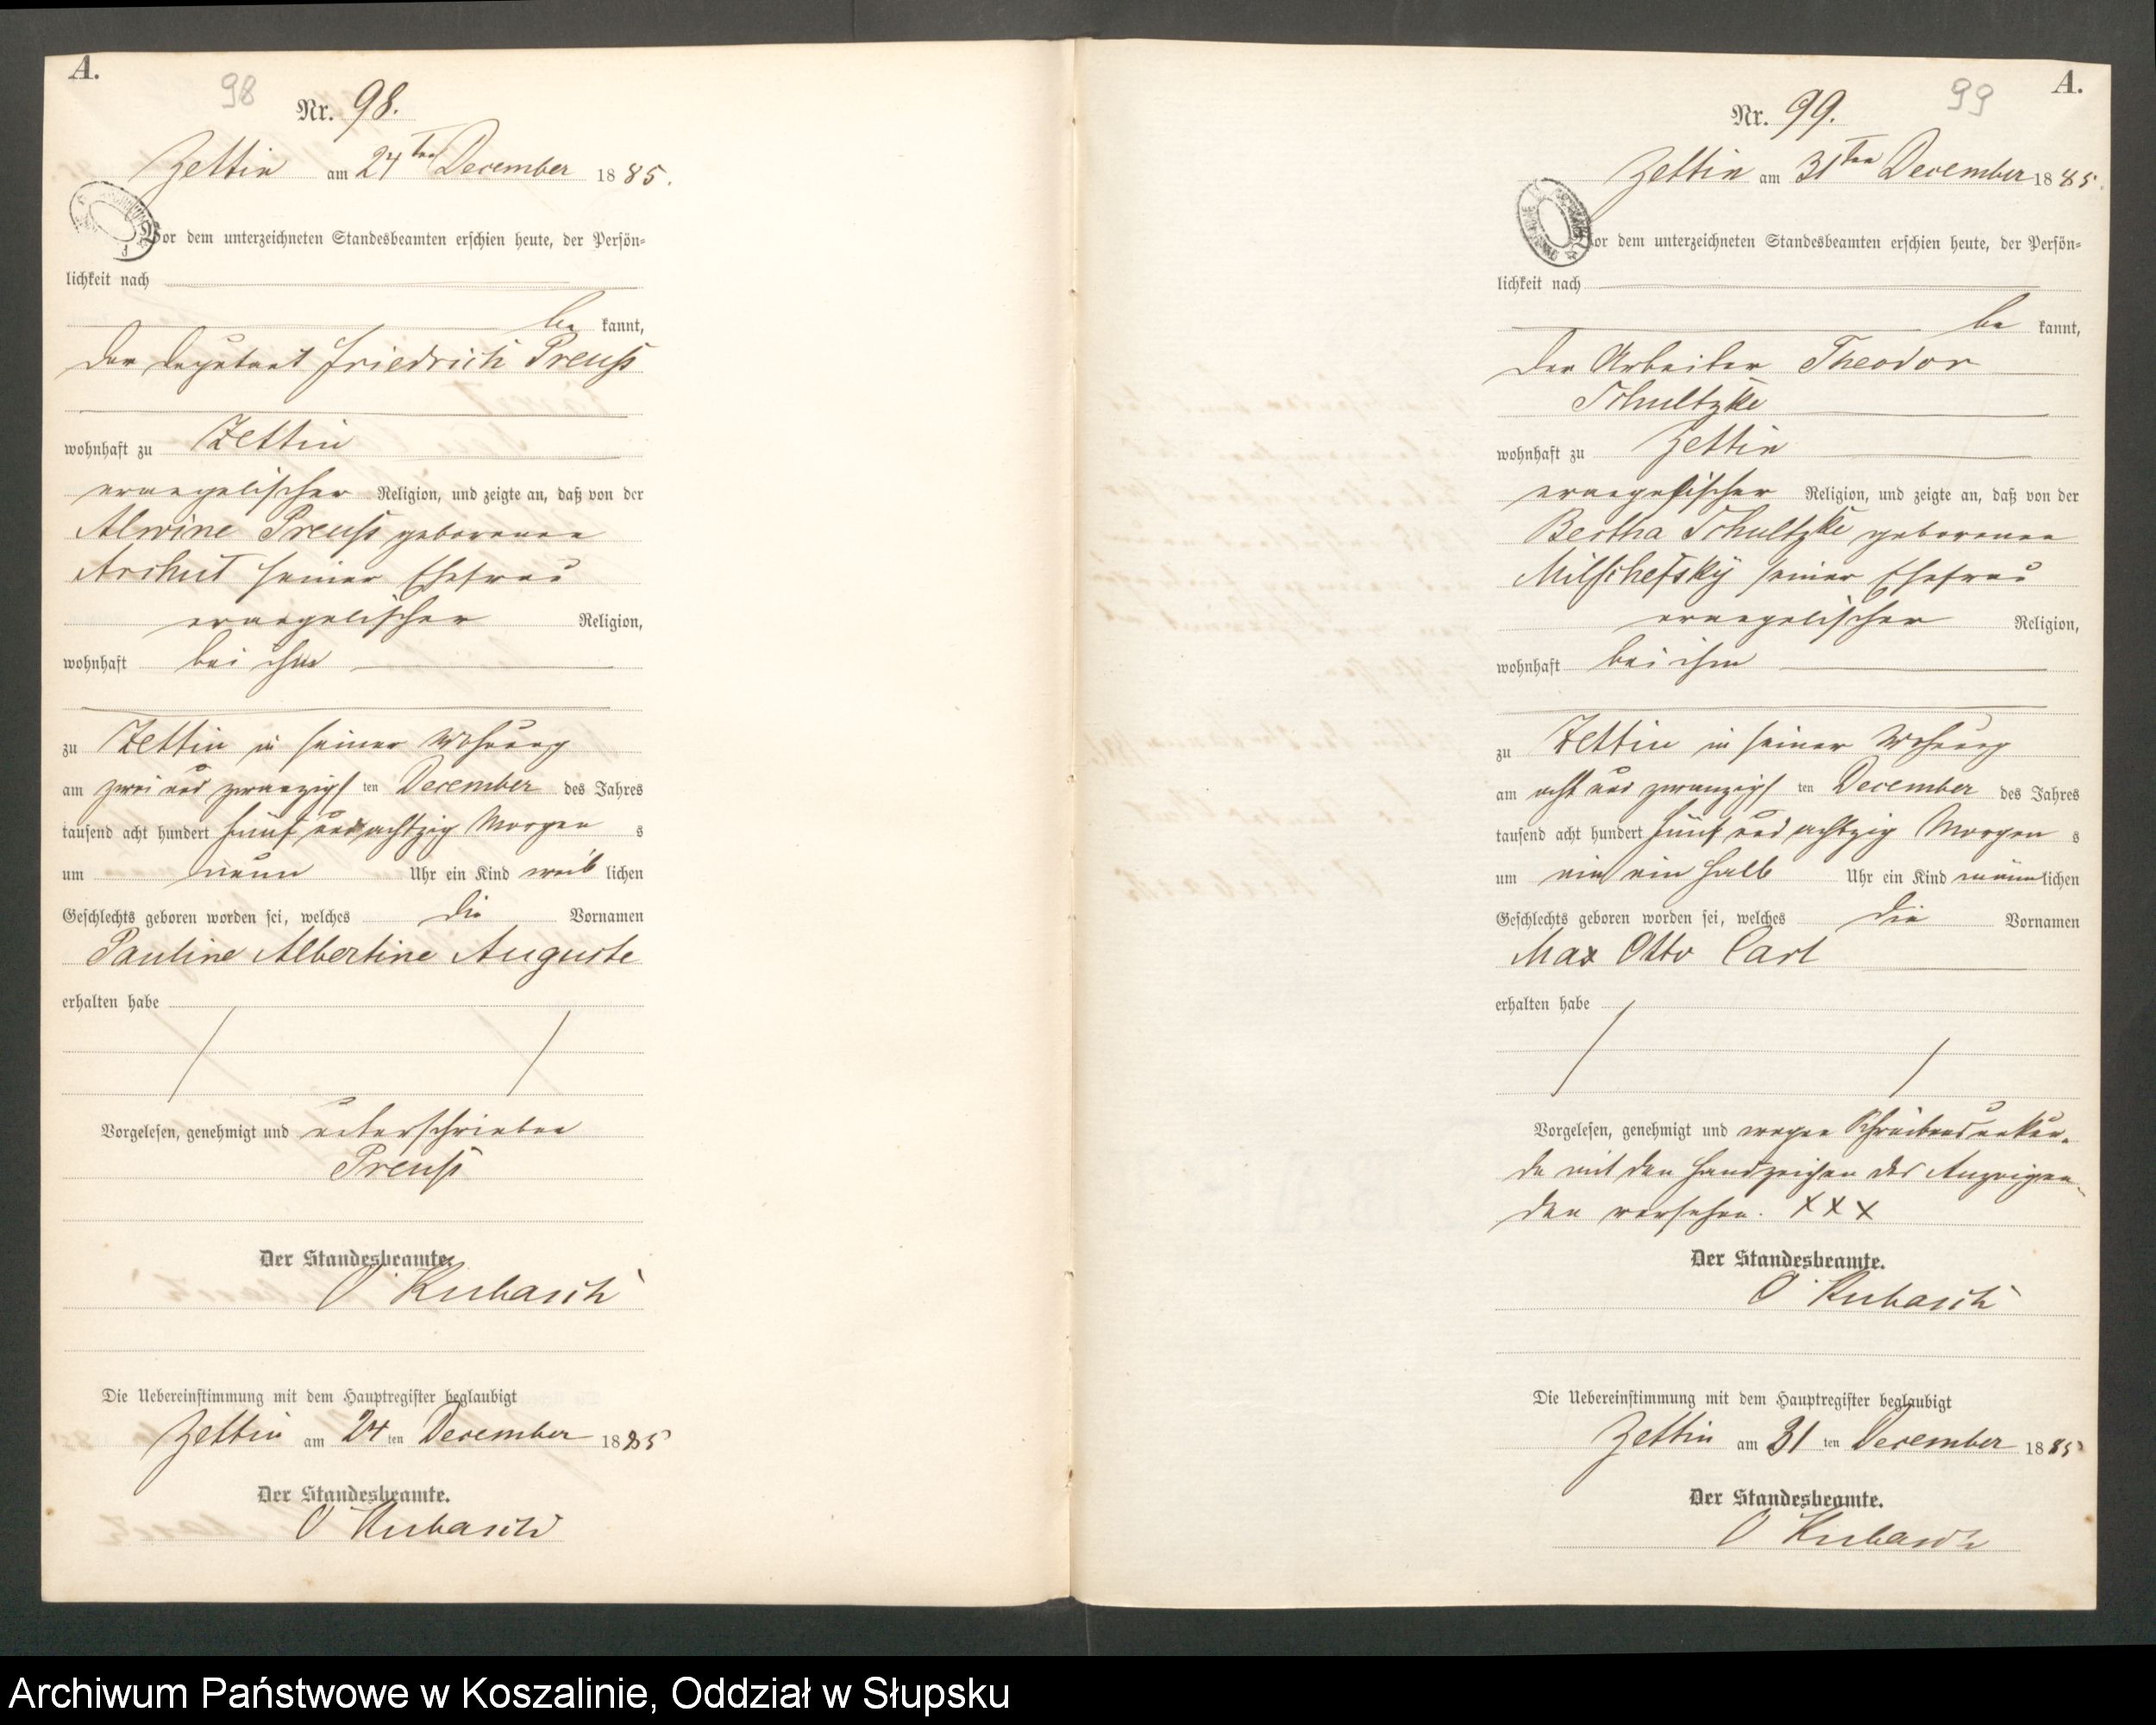 A.
98
Nr. 98.
Zettin am 24ten December 1885.
Vor dem unterzeichneten Standesbeamten erschien heute, der Persön=
lichkeit nach
be kannt,
der Deputant Friedrich Preuß
wohnhaft zu Zettin
evangelischer Religion, und zeigte an, daß von der
Alwine Preuß geborenen
Archut seiner Ehefrau
evangelischer Religion,
wohnhaft bei ihm
zu Zettin in seiner Wohnung
am zwei und zwanzigs ten December des Jahres
tausend acht hundert fünf und achtzig Morgen s
um neun Uhr ein Kind weib lichen
Geschlechts geboren worden sei, welches die Vornamen
Pauline Albertine Auguste
erhalten habe
Vorgelesen, genehmigt und unterschrieben
Preuß
Der Standesbeamte.
O Kubasch
Die Uebereinstimmung mit dem Hauptregister beglaubigt
Zettin am 24 ten December 1885
Der Standesbeamte.
O Kubasch
A.
99
Nr. 99.
Zettin am 31ten December 1885.
Vor dem unterzeichneten Standesbeamten erschien heute, der Persön=
lichkeit nach
be kannt,
der Arbeiter Theodor
Schultzke
wohnhaft zu Zettin
evangelischer Religion, und zeigte an, daß von der
Bertha Schultzke geborenen
Milschefsky seiner Ehefrau
evangelischer Religion,
wohnhaft bei ihm
zu Zettin in seiner Wohnung
am acht und zwanzigs ten December des Jahres
tausend acht hundert fünf und achtzig Morgen s
um ein ein halb Uhr ein Kind männlichen
Geschlechts geboren worden sei, welches die Vornamen
Max Otto Carl
erhalten habe
Vorgelesen, genehmigt und wegen Schreibensunkun=
de mit den Handzeichen des Anzeigen=
den versehen. XXX
Der Standesbeamte.
O Kubasch
Die Uebereinstimmung mit dem Hauptregister beglaubigt
Zettin am 31 ten December 1885
Der Standesbeamte.
O Kubasch
Archiwum Państwowe w Koszalinie, Oddział w Słupsku